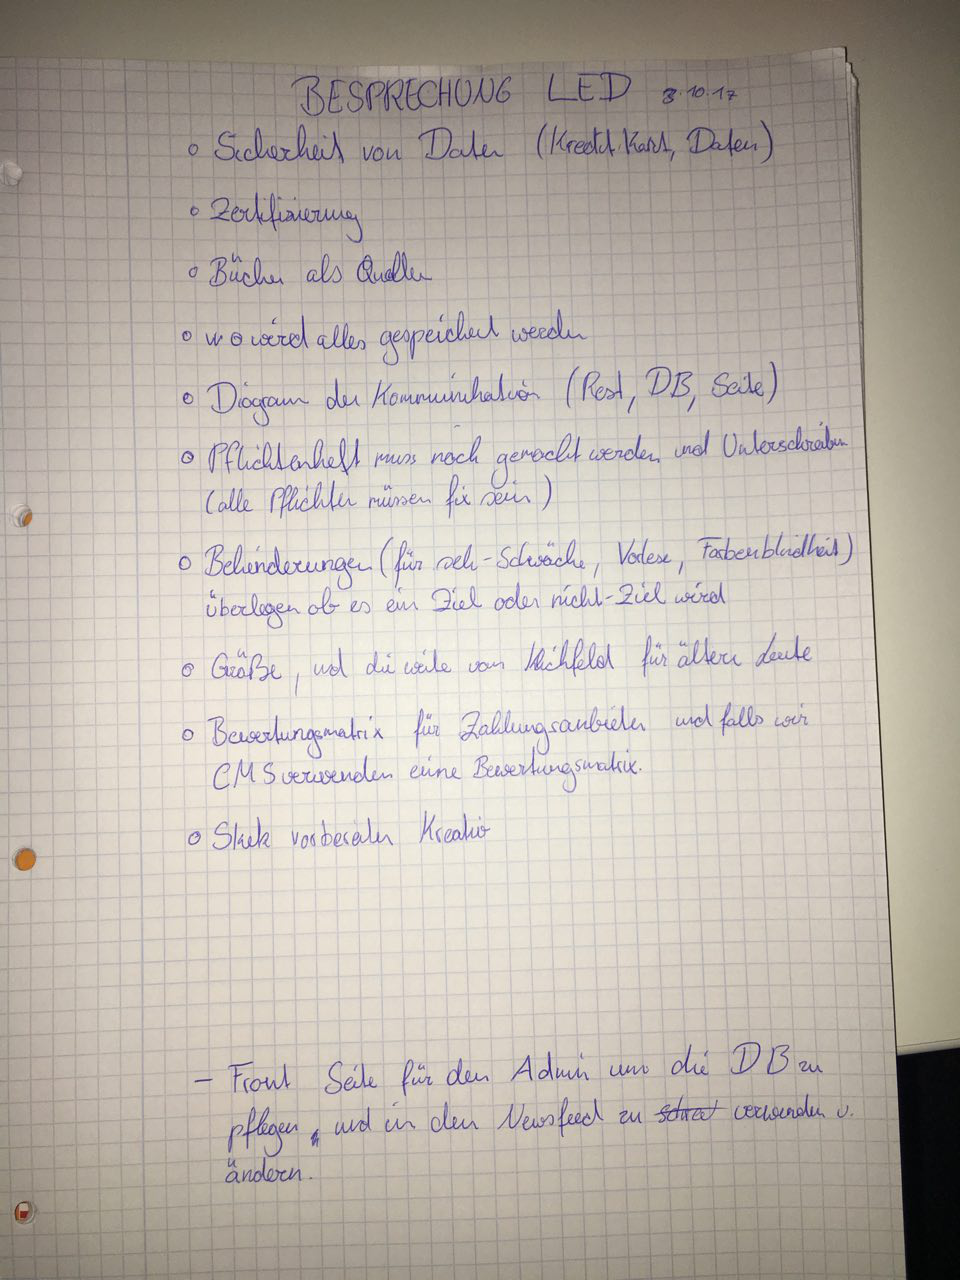 BESPRECHUNG LED 3.10.17
o Sicherheit von Daten (Kredit Kart, Daten)
o Zertifizierung
o Bücher als Quellen
o wo wird alles gespeichert werden
o Diagram der Kommunikation (Rest, DB, Seite)
o Pflichtenheft muss noch gemacht werden und Unterschreiben
(alle Pflichten müssen fix sein)
o Behinderungen (für seh-Schwäche, Vorlese, Farbenblindheit)
überlegen ob es ein Ziel oder nicht-Ziel wird
o Größe, und die weite vom für ältere Leute
o Bewertungsmatrix für Zahlungsanbieter und falls wir
CMS verwenden eine Bewertungsmatrix.
o vorbereiten Kreativ
– Front Seite für den Admin um die DB zu
pflegen, und in den Newsfeed zu verwenden u.
ändern.